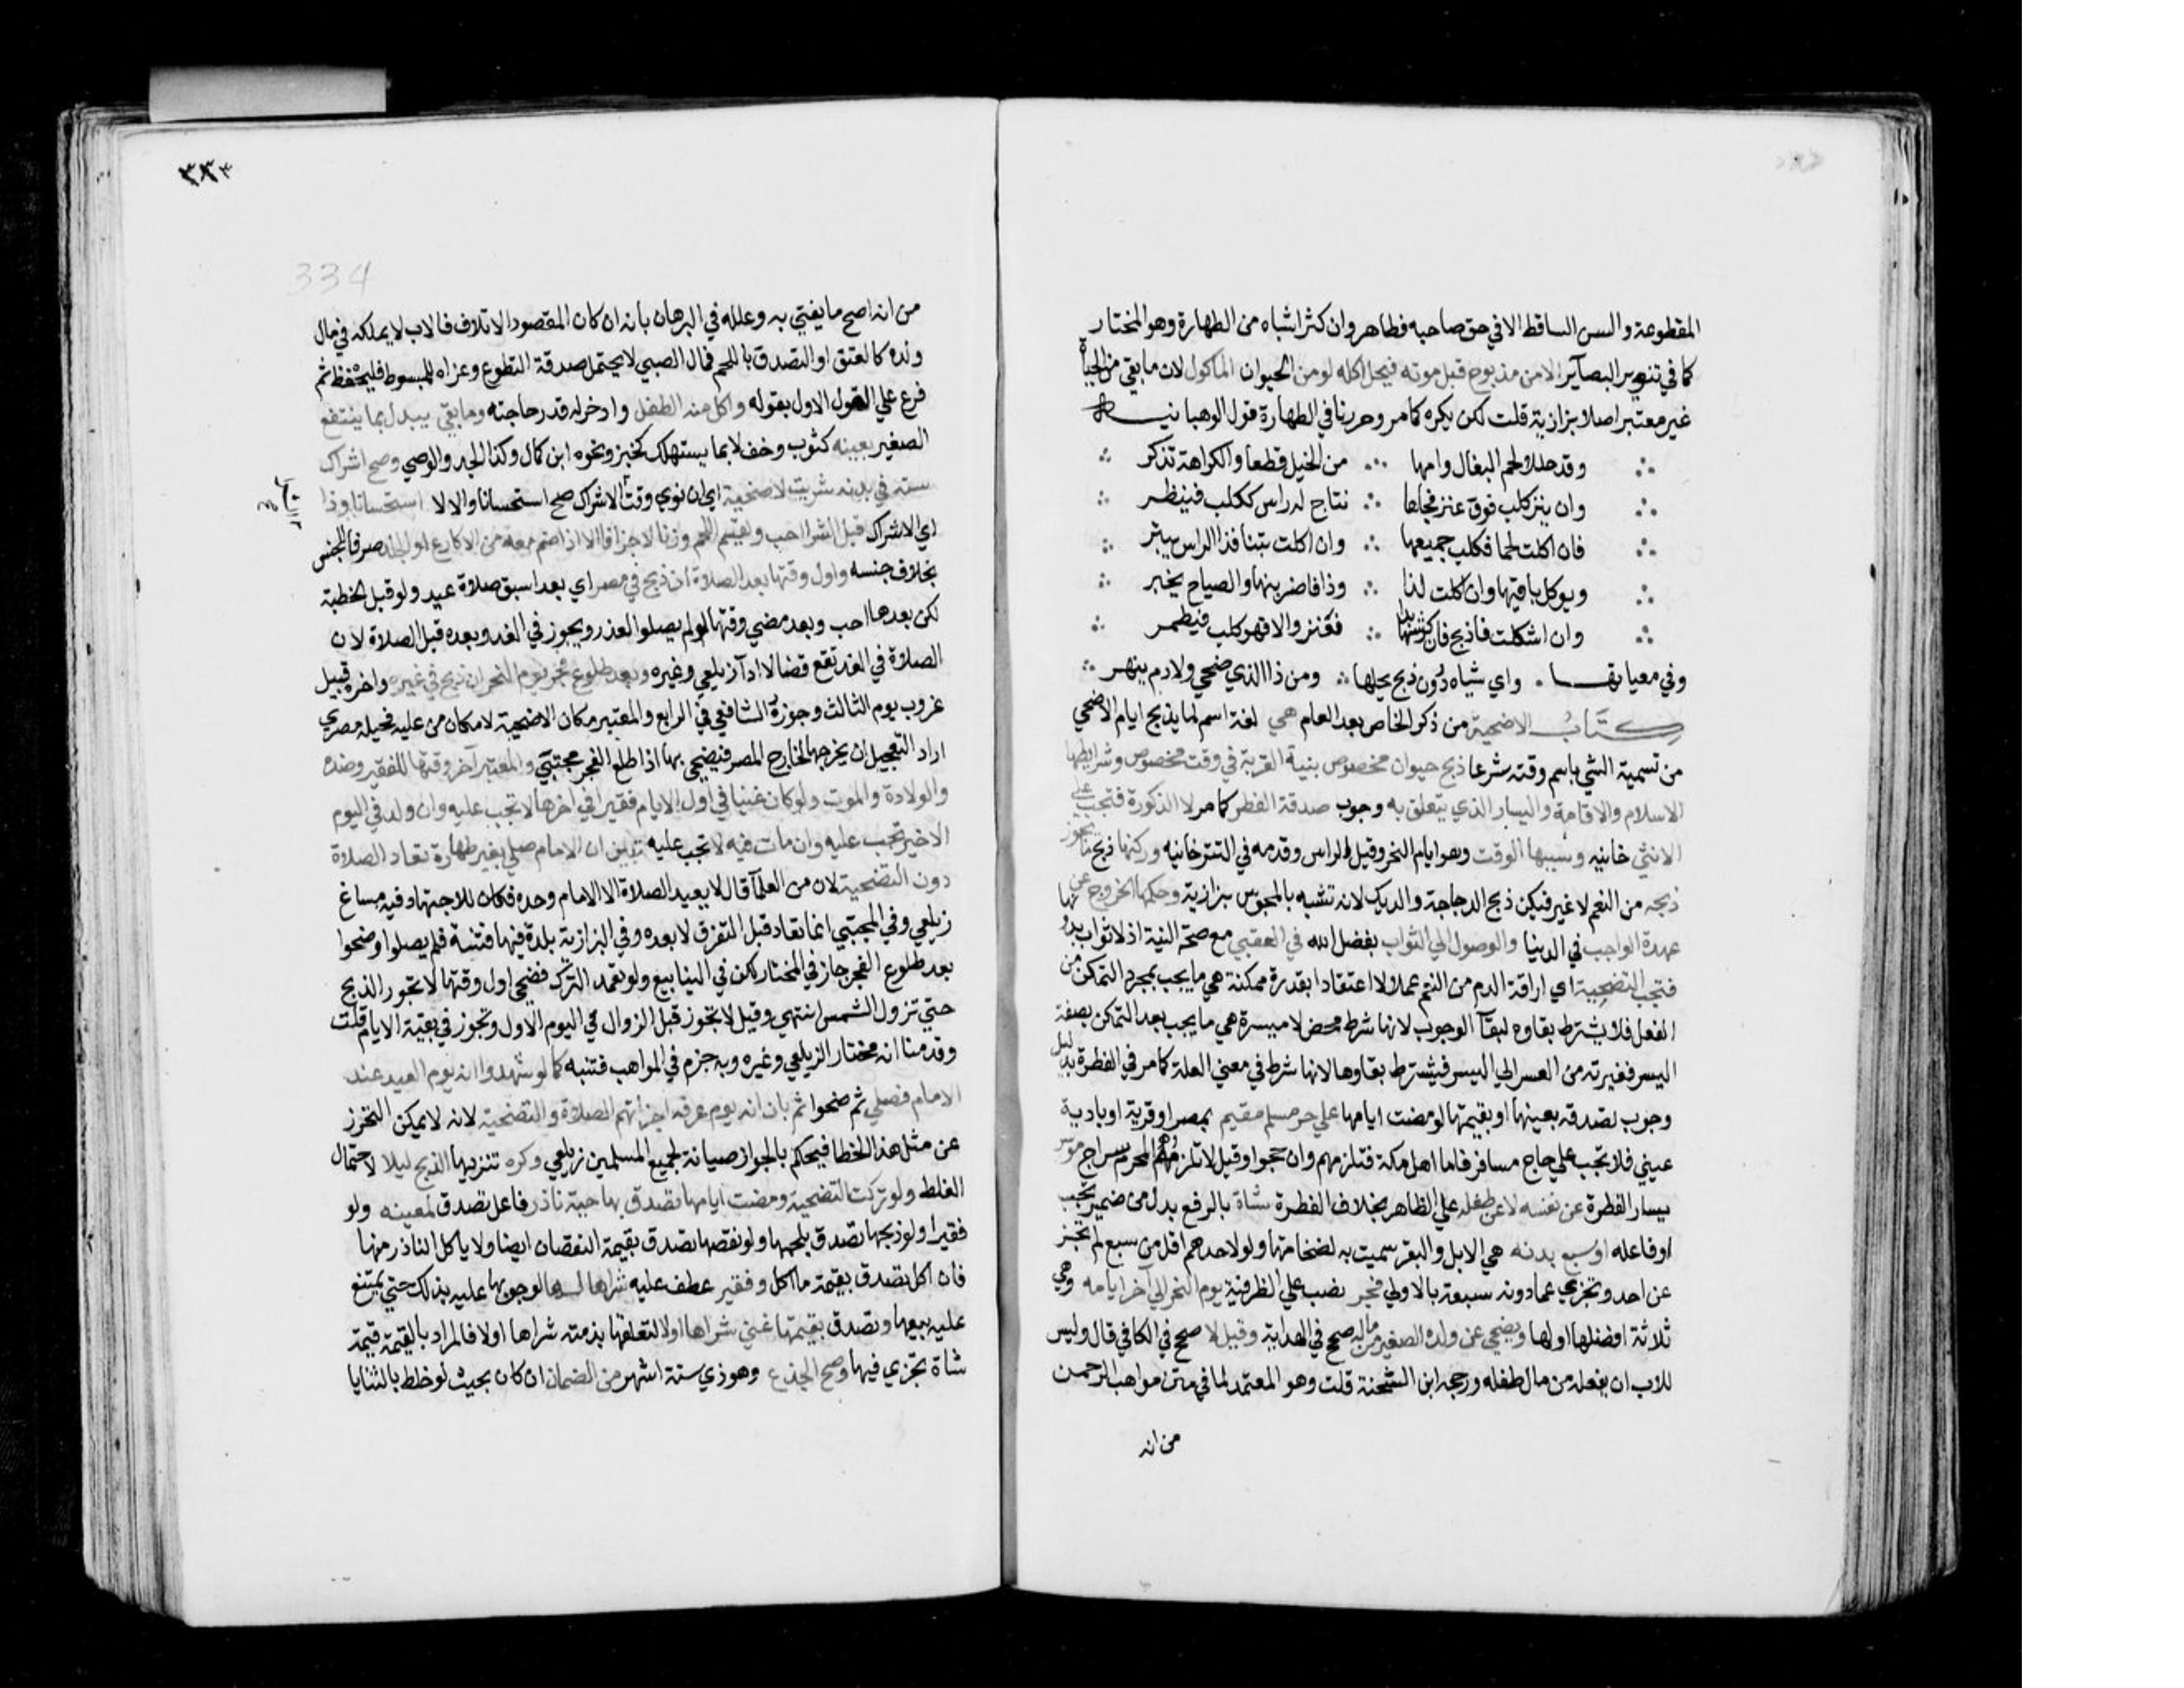 المقطوعة والسن الساقط الا في حق صاحبه فطاهر وان كثر اشباه من الطهارة وهو المختار
كما في تنوير البصآير الا من مذبوح قبل موته فيحل اكله لو من الحيوان الماكول لان ما بقي من الحياة
غير معتبر اصلا بزازية قلت لكن يكره كما مر وحررنا في الطهارة قول الوهبانيه
وقد حللوا لحم البغال وامها من الخيل قطعا والكراهة تذكر
وان ينز كلب فوق عنز فجاءها نتاج له راس ككلب فينظر
فان اكلت لحما فكلب جميعها وان اكلت تبنا فذا الراس يبتر
ويوكل باقيها وان اكلت لذا وذا فاضربنها والصياح يخبر
وان اشكلت فاذبح فان كرشها بدا فعنز والا فهو كلب فيطمر
وفي معياتها واي شياه دون ذبح يحلها ومن ذا الذي ضحى ولا دم ينهر
كتاب الاضحية من ذكر الخاص بعد العام هي لغة اسم لما يذبح ايام الاضحي
من تسمية الشي باسم وقته شرعا ذبح حيوان مخصوص بنية القربة في وقت مخصوص وشرايطها
الاسلام والاقامة واليسار الذي يتعلق به وجوب صدقة الفطر كما مر لا الذكورة فتجب علي
الانثي خانيه وسببها الوقت وهو ايام النحر وقيل الراس وقدمه في التترخانيه وركنها ذبح ما يجوز
ذبحه من النعم لا غير فيكره ذبح الدجاجة والديك لانه تشبه بالمجوس بزازية وحكمها الخروج عن
عهدة الواجب في الدنيا والوصول الي الثواب بفضل الله في العقبي مع صحة النية اذ لا ثواب بدونها
فتجب التضحية اي اراقة الدم من النعم عملا لا اعتقادا بقدرة ممكنة هي ما يجب بمجرد التمكن من
الفعل فلا يشترط بقاوه لبقآ الوجوب لانها شرط محض لا ميسرة هي ما يجب بعد التمكن بصفة
اليسر فغيرته من العسر الي اليسر فيشترط بقاوها لانها شرط في معني العلة كما مر في الفطرة بدليل
وجوب تصدقه بعينها او بقيمتها لو مضت ايامها علي حر مسلم مقيم بمصر او قرية او بادية
عيني فلا تجب علي حاج مسافر فاما اهل مكة فتلزمهم وان حجوا وقيل لا تلزم المحرم سراج موسر
يسار الفطرة عن نفسه لا عن طفله علي الظاهر بخلاف الفطرة شاة بالرفع بدل من ضمير تجب
او فاعله او سبع بدنه هي الابل والبقر سميت به لضخامتها ولو لاحدهم اقل من سبع لم تجز
عن احد وتجزي عما دونه سبعة بالاولي فجر نصب علي الظرفية يوم النحر الي آخر ايامه وهي
ثلاثة افضلها اولها ويضحي عن ولده الصغير من ماله صحح في الهداية وقيل لا صحح في الكافي قال وليس
للاب ان يفعله من مال طفله ورجحه ابن الشحنة قلت وهو المعتمد لما في متن مواهب الرحمن
من انه
٣٨٣
334
من انه اصح ما يفتي به وعلله في البرهان بانه ان كان المقصود الاتلاف فالاب لا يملكه في مال
ولده كالعتق او التصدق باللحم فمال الصبي لا يحتمل صدقة التطوع وعزاه للمبسوط فليحفظ ثم
فرع علي القول الاول بقوله واكل منه الطفل وادخر له قدر حاجته وما بقي يبدل بما ينتفع
الصغير بعينه كثوب وخف لا بما يستهلك كخبز ونحوه ابن كمال وكذا الجد والوصي وصح اشراك
ستة في بدنه شريت لاضحية اي ان نوي وقت الاشراك صح استحسانا والا لا استحسانا وذا
اي الاشراك قبل الشرا احب ويقسم اللحم وزنا لا جزافا الا اذا ضم معه من الاكارع او الجلد صرفا لجنس
بخلاف جنسه واول وقتها بعد الصلاة ان ذبح في مصر اي بعد اسبق صلاة عيد ولو قبل الخطبة
لكن بعدها احب وبعد مضي وقتها لو لم يصلوا لعذر ويجوز في الغد وبعده قبل الصلاة لان
الصلاة في الغد تقع قضا لا ادآ زيلعي وغيره وبعد طلوع فجر يوم النحر ان ذبح في غيره واخره قبيل
غروب يوم الثالث وجوزه الشافعي في الرابع والمعتبر مكان الاضحية لا مكان من عليه فحيلة مصري
اراد التعجيل ان يخرجها لخارج المصر فيضحي بها اذا طلع الفجر مجتبي والمعتبر آخر وقتها للفقير وضده
والولادة والموت ولو كان غنيا في اول الايام فقيرا في اخرها لا تجب عليه وان ولد في اليوم
الاخير تجب عليه وان مات فيه لا تجب عليه تبين ان الامام صلي بغير طهارة تعاد الصلاة
دون التضحية لان من العلمآ قال لا يعيد الصلاة الا الامام وحده فكان للاجتهاد فيه مساغ
زيلعي وفي المجتبي انما تعاد قبل التفرق لا بعده وفي البزازية بلدة فيها فتنة فلم يصلوا وضحوا
بعد طلوع الفجر جاز في المختار لكن في الينابيع ولو تعمد الترك فضحي اول وقتها لا تجوز الذبح
حتي تزول الشمس انتهي وقيل لا تجوز قبل الزوال في اليوم الاول وتجوز في بقية الايام قلت
وقدمنا انه مختار الزيلعي وغيره وبه جزم في المواهب فتنبه كما لو شهدوا انه يوم العيد عند
الامام فصلي ثم ضحوا ثم بان انه يوم عرفه اجزاتهم الصلاة والتضحية لانه لا يمكن التحرز
عن مثل هذا الخطا فيحكم بالجواز صيانة لجميع المسلمين زيلعي وكره تنزيها الذبح ليلا لاحتمال
الغلط ولو تركت التضحية ومضت ايامها تصدق بها حية ناذر فاعل تصدق لمعينه ولو
فقيرا ولو ذبحها تصدق بلحمها ولو نقصها تصدق بقيمة النقصان ايضا ولا ياكل الناذر منها
فان اكل تصدق بقيمة ما اكل وفقير عطف عليه شراها لها لوجوبها عليه بذلك حتي يمتنع
عليه بيعها وتصدق بقيمتها غني شراها او لا لتعلقها بذمته شراها اولا فالمراد بالقيمة قيمة
شاة تجزي فيها وصح الجذع وهو ذي ستة اشهر من الضمان ان كان بحيث لو خلط بالثنايا